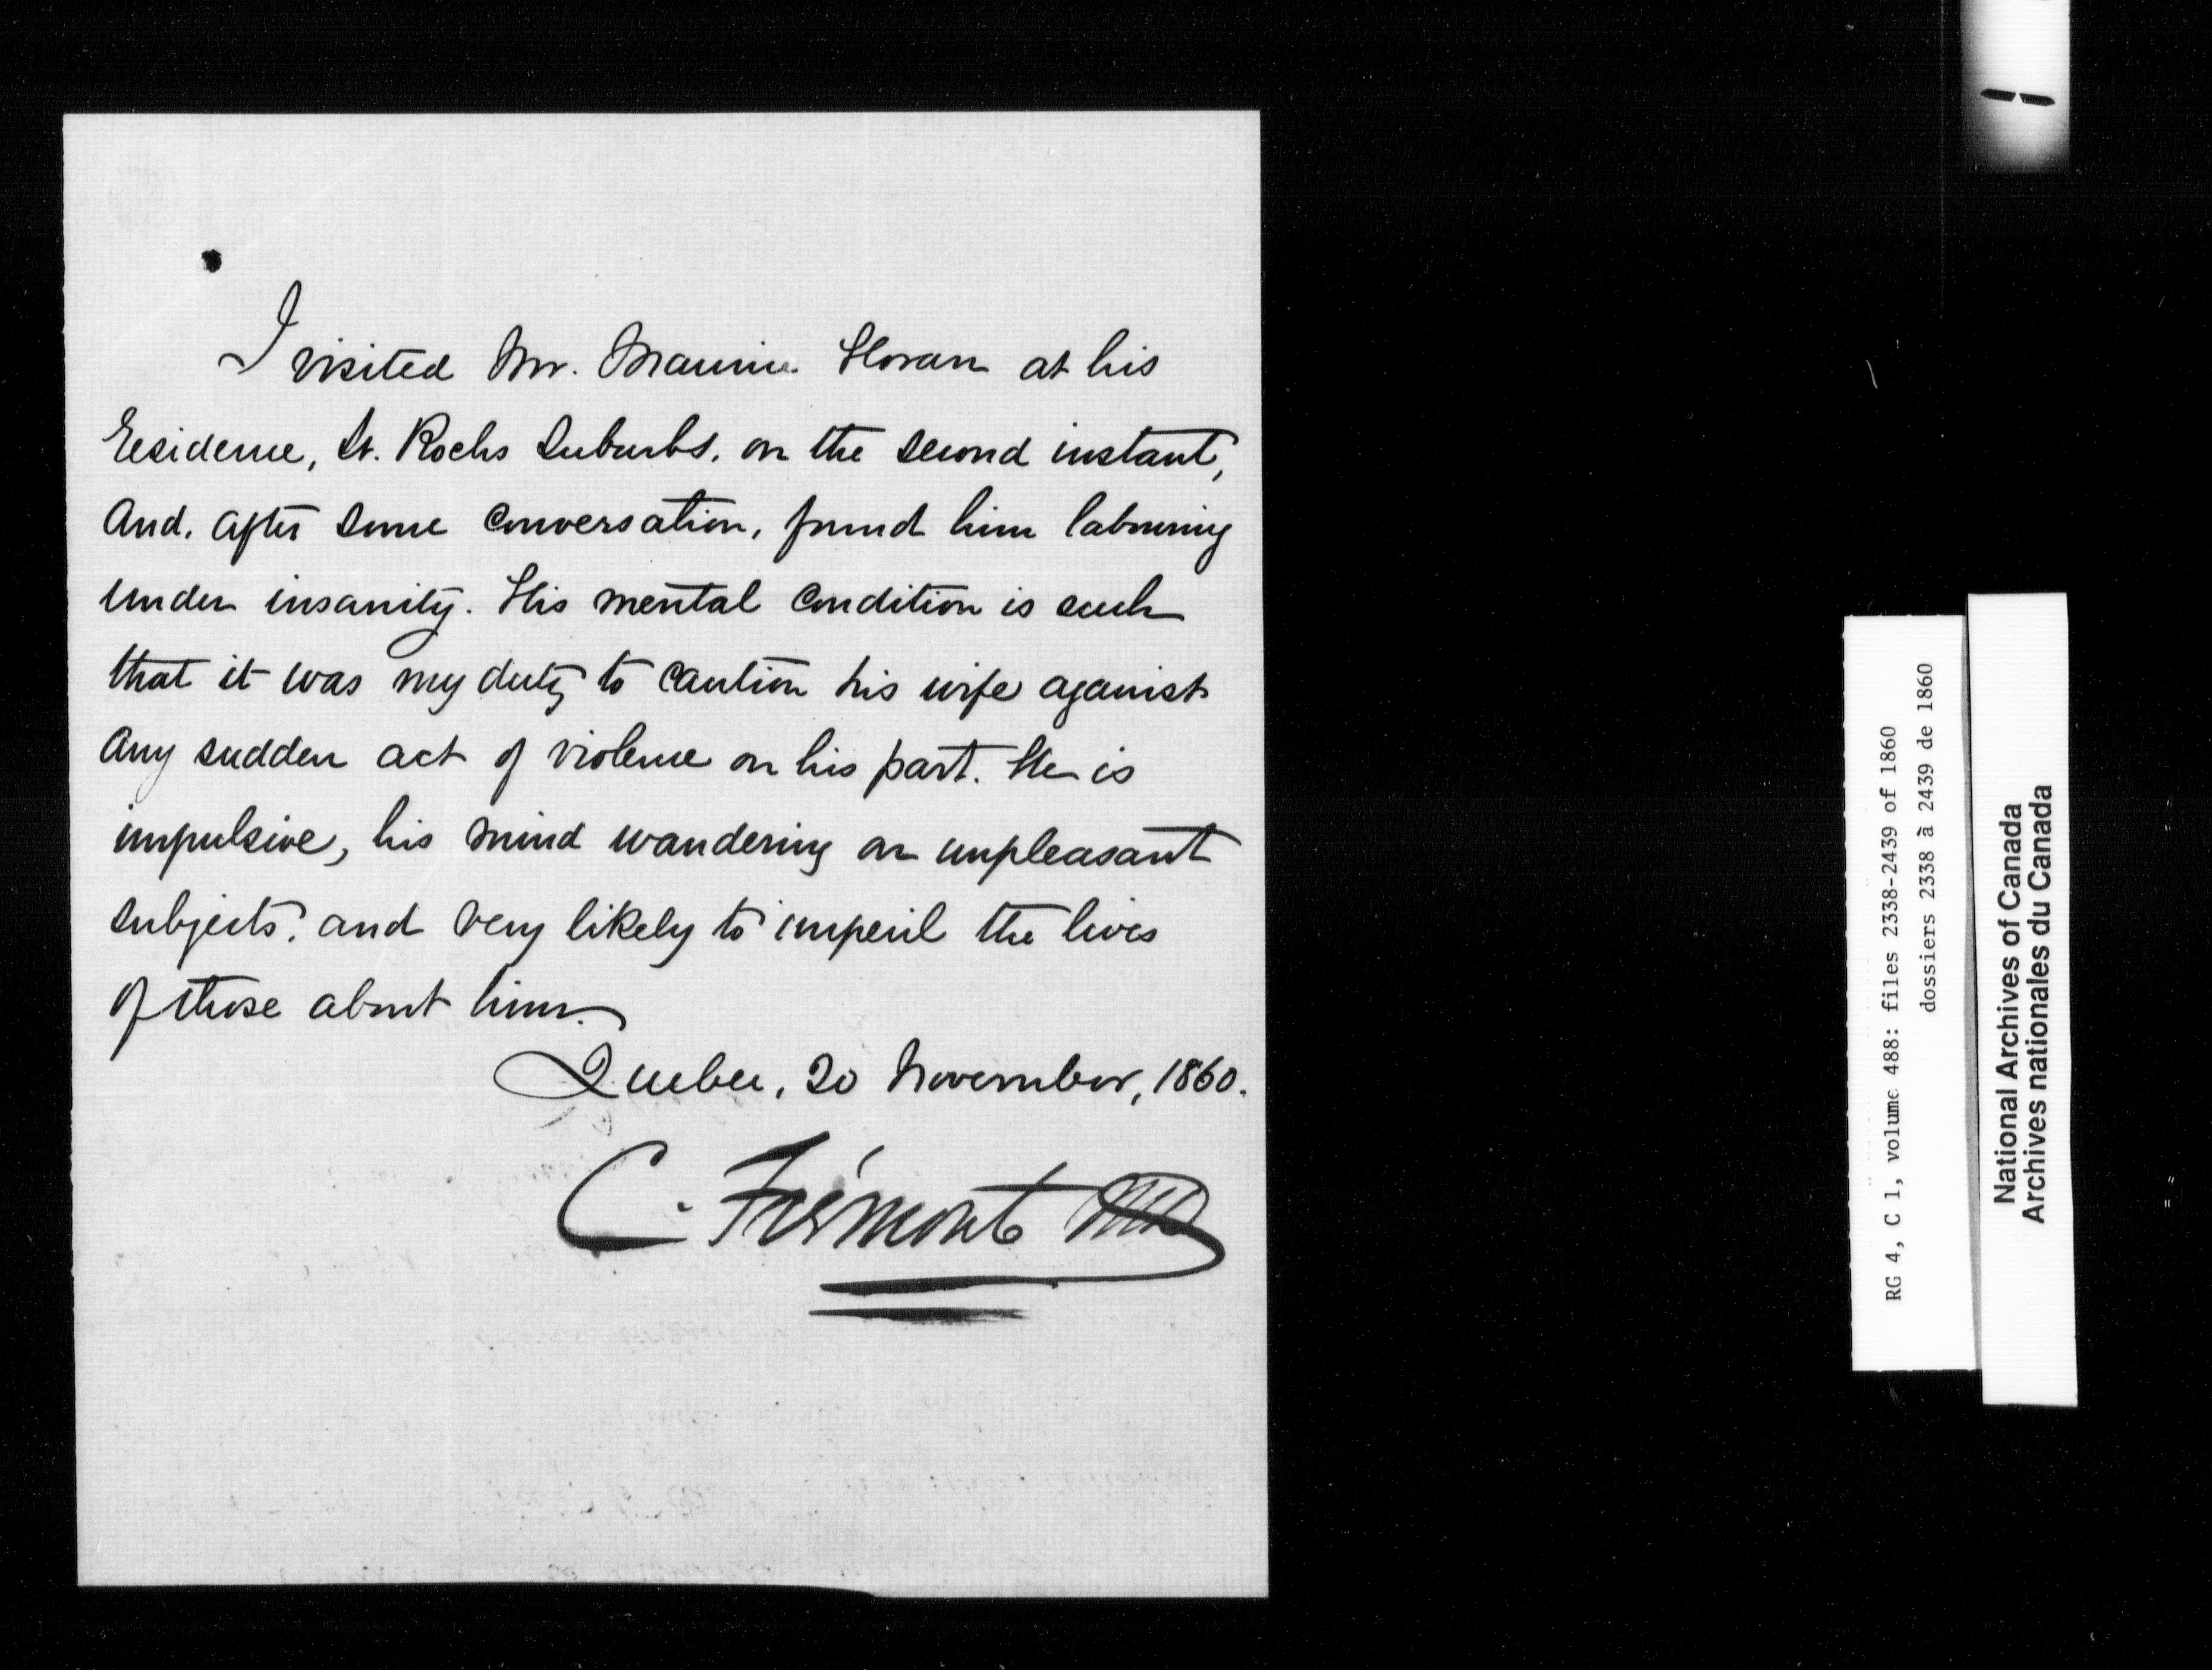 I visited Mr. Maurice Horan at his
residence, St. Rochs Suburbs, on the second instant,
and, after some conversation, found him labouring
under insanity. His mental condition is such
that it was my duty to caution his wife against
any sudden act of violence on his part. He is
impulsive, his mind wandering on unpleasant
subjects, and very likely to imperil the lives
of those about him.
Quebec, 20 November, 1860.
C. Frémont MD
RG 4, C 1, volume 488: files 2338-2439 of 1860
dossiers 2338 à 2439 de 1860
National Archives of Canada
Archives nationales du Canada